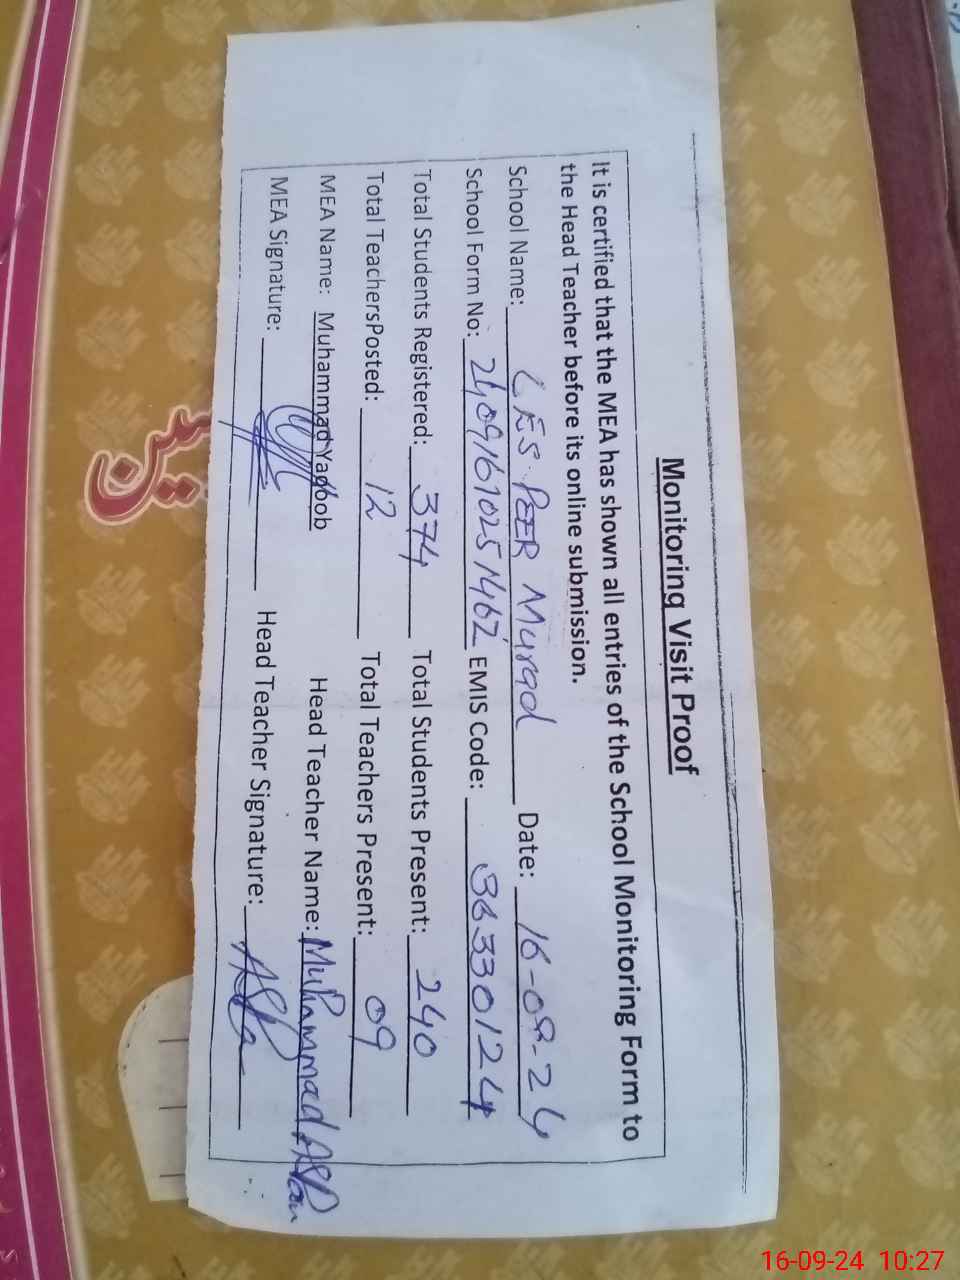 Monitoring Visit Proof
It is certified that the MEA has shown all entries of the School Monitoring Form to
the Head Teacher before its online submission.
School Name: GES PEER Murad Date: 16-09-24
School Form No: 24091610251462 EMIS Code: 36330124
Total Students Registered: 374 Total Students Present: 240
Total TeachersPosted: 12 Total Teachers Present: 09
MEA Name: Muhammad Yaqoob Head Teacher Name: Muhammad
MEA Signature: Head Teacher Signature:
16-09-24 10:27